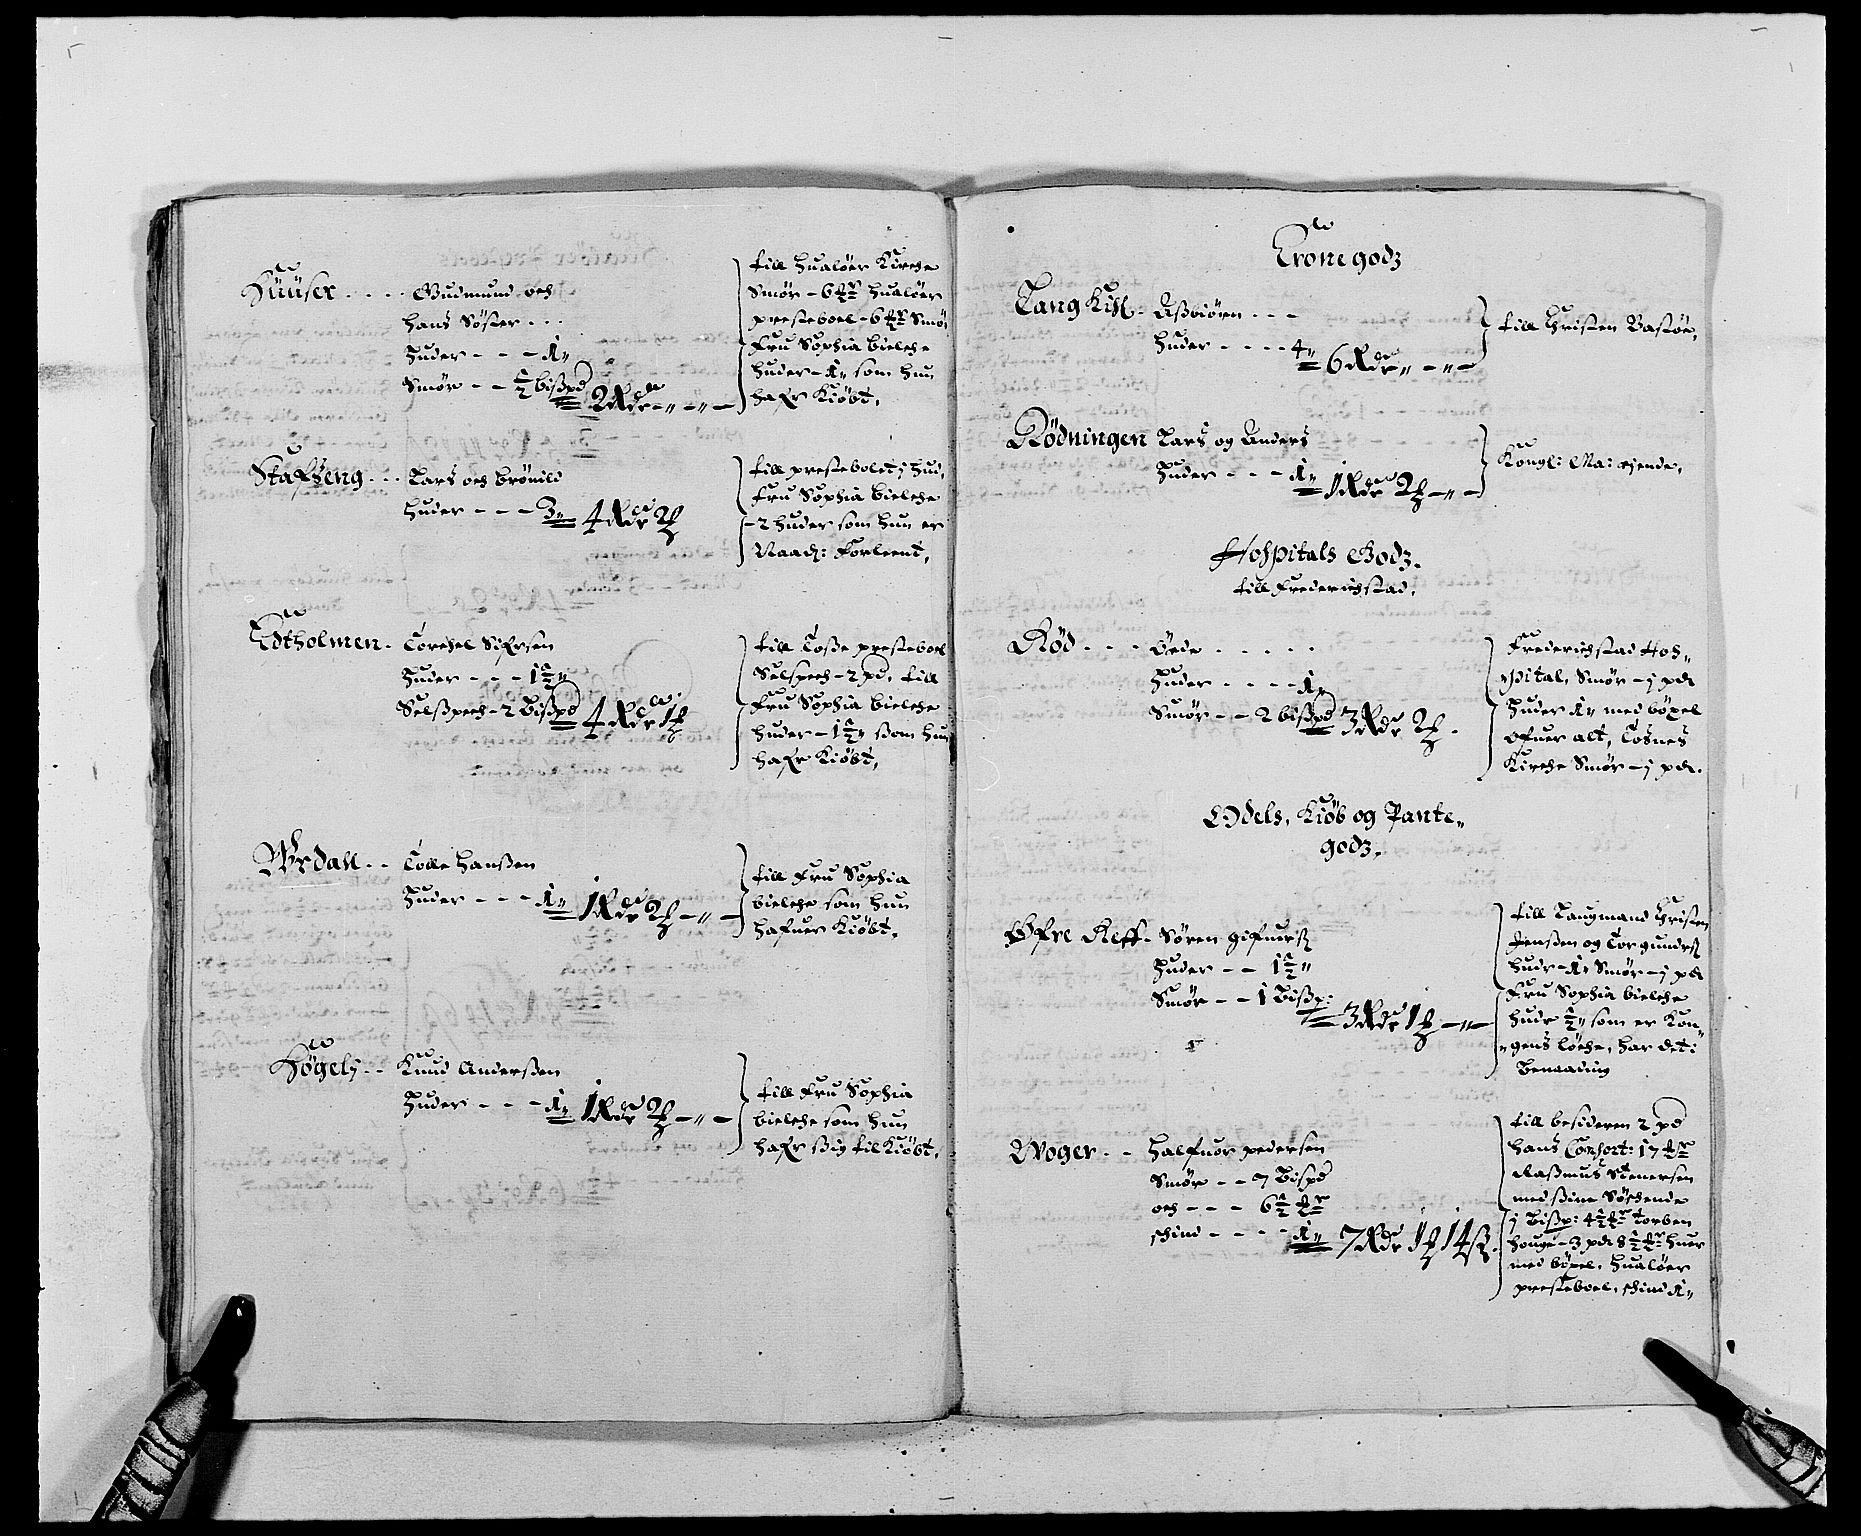 Huuser - - - - Gudmund och
hans Søster - - -
Huder - - - 1„
Smør - - ½ bißpd 2 Rdr - „ - „ -
till Hualøer Kirche
Smør - 6 mr Hualøer
presteboel - 6 mr Smør
Fru Sophia bielche
huder - 1„ som hun
hafr Kiøbt,
Stafseng - - - Lars och brønild
huder - - - 3„ 4 Rdr 2
till prestebolet j hud,
Fru Sophia bielche
- 2 huder som hun er
Naad: Forleent,
Edtholmen - Torchel Sifrsen
Huder - - - 1½„
Selspech - 2 Bißpd 4 Rdr 1
till Toße presteboel
Selspech - 2 pd, till
Fru Sophia bielche
huder - 1½„ som hun
hafr Kiøbt,
Wrdall - - Tolle Hanßen
Huder - - - 1„ 1 Rdr 2 - „ -
till Fru Sophia
bielche som hun
hafuer Kiøbt,
Høgely - - Knud Anderßen
Huder - - - 1„ 1 Rdr 2 - „ -
till Fru Sophia
bielche som hun
hafr sig til Kiøbt,
Cronegodz
Tang Kill - Aßbiørn - - -
Huder - - - - 4„ 6 Rdr „ - „ -
till Christen Bastøe,
Rødningen Lars og Anders
Huder - - - 1„ 1 Rdr 2 - „ -
Kongl: Ma: ejende,
Hospitals Godz.
till Frederichstad,
Rød - - - Øede - - - - -
Huder - - - - 1„
Smør - - 2 bißpd 3 Rdr 2 -
Frederichstad Hos-
pital, Smør - j pd
Huder 1„ med bøxel
ofuer alt, Tosnes
Kirche Smør - j pd.
Odels, Kiøb og Pante-
godz,
Øfre Reff - Søren gifuerß
Huder - - 1½„
Smør - - 1 Bißp: 3 Rdr 1 - „ -
till Laugmand Christen
Jenßen og Torgunders
hudr - 1„ Smør - j pd
Fru Sophia bielche
hudr ½„ som er Kon-
gens løche, har det i
benaading
Woger - - Halfuor pedersen
Smør - - 7 Bispd
och - - - 6½ mr
schind - - - - 1„ 7 Rdr 1 14 ß.
till besideren 2 pd
hans Consort: 17 mr
Raßmus Stenersen
med ßine Søschende
j Bißp: 4½ mr Torben
houge - 3 pd 8½ mr huer
med bøxel, Hualøer
presteboel, schind 1„